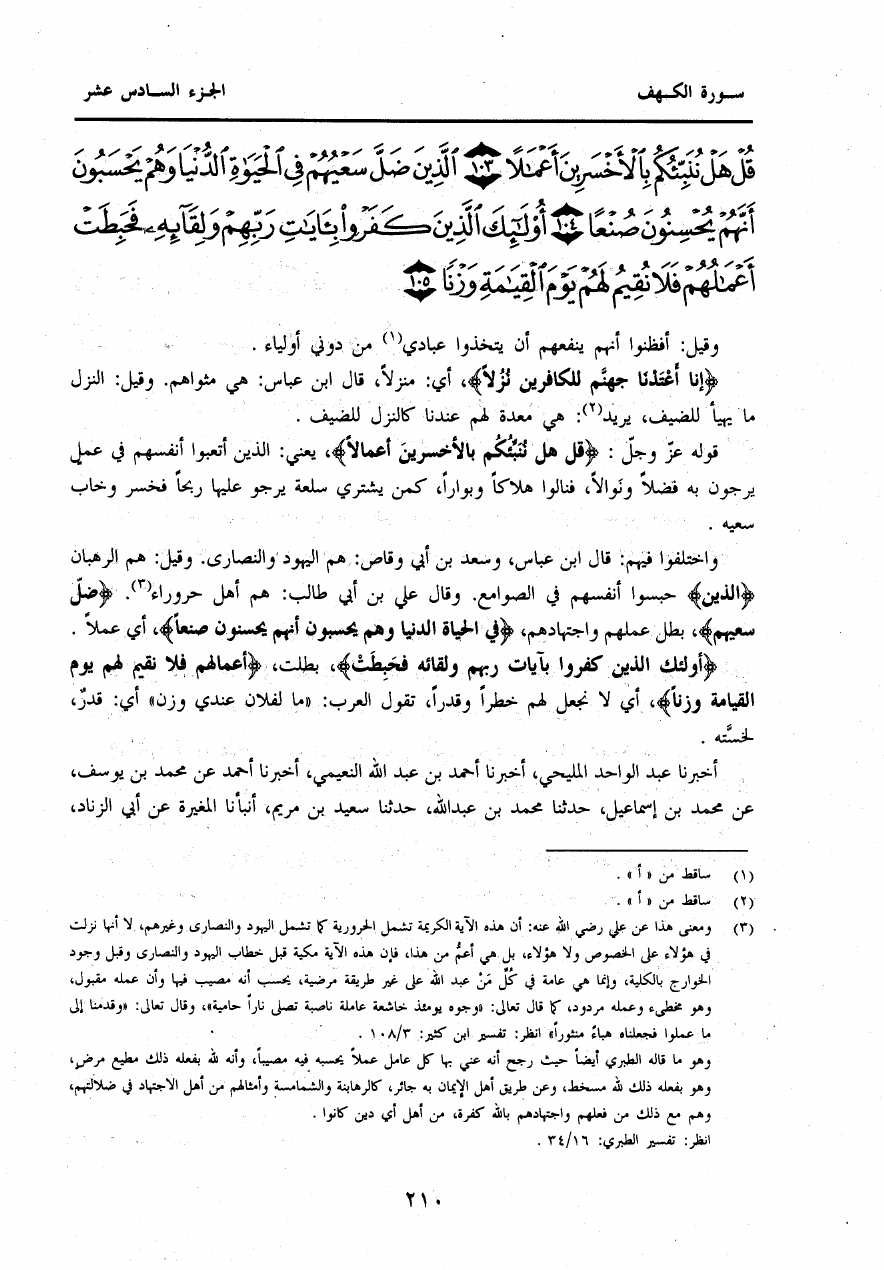 سورة الكهف
الجزء السادس عشر
قُلْ هَلْ نُنَبِّئُكُم بِالْأَخْسَرِينَ أَعْمَالًا ١٠٣ الَّذِينَ ضَلَّ سَعْيُهُمْ فِي الْحَيَوٰةِ الدُّنْيَا وَهُمْ يَحْسَبُونَ
أَنَّهُمْ يُحْسِنُونَ صُنْعًا ١٠٤ أُوْلَٰٓئِكَ الَّذِينَ كَفَرُوا۟ بِـَٔايَٰتِ رَبِّهِمْ وَلِقَآئِهِۦ فَحَبِطَتْ
أَعْمَٰلُهُمْ فَلَا نُقِيمُ لَهُمْ يَوْمَ الْقِيَٰمَةِ وَزْنًا ١٠٥
وقيل: أفظنوا أنهم ينفعهم أن يتخذوا عبادي(١) من دوني أولياء .
﴿إنا أَعْتَدْنَا جهنَّم للكافرين نُزُلاً﴾، أي: منزلاً، قال ابن عباس: هي مثواهم. وقيل: النزل
ما يهيأ للضيف، يريد(٢): هي معدة لهم عندنا كالنزل للضيف .
قوله عزّ وجلّ : ﴿قل هل نُنَبِّئُكُم بالأخسرينَ أعمالاً﴾، يعني: الذين أتعبوا أنفسهم في عملٍ
يرجون به فضلاً ونَوالاً، فنالوا هلاكاً وبواراً، كمن يشتري سلعة يرجو عليها ربحاً فخسر وخاب
سعيه .
واختلفوا فيهم: قال ابن عباس، وسعد بن أبي وقاص: هم اليهود والنصارى. وقيل: هم الرهبان
﴿الذين﴾ حبسوا أنفسهم في الصوامع. وقال علي بن أبي طالب: هم أهل حروراء(٣). ﴿ضلّ
سعيهم﴾، بطل عملهم واجتهادهم، ﴿في الحياة الدنيا وهم يحسبون أنهم يحسنون صنعاً﴾، أي عملاً .
﴿أولئك الذين كفروا بآيات ربهم ولقائه فحَبِطَتْ﴾، بطلت، ﴿أعمالهم فلا نقيم لهم يوم
القيامة وزناً﴾، أي لا نجعل لهم خطراً وقدراً، تقول العرب: «ما لفلان عندي وزن» أي: قدرٌ،
لخسَّته .
أخبرنا عبد الواحد المليحي، أخبرنا أحمد بن عبد الله النعيمي، أخبرنا أحمد عن محمد بن يوسف،
عن محمد بن إسماعيل، حدثنا محمد بن عبدالله، حدثنا سعيد بن مريم، أنبأنا المغيرة عن أبي الزناد،
(١) ساقط من « أ » .
(٢) ساقط من « أ » .
(٣) ومعنى هذا عن علي رضي الله عنه: أن هذه الآية الكريمة تشمل الحرورية كما تشمل اليهود والنصارى وغيرهم، لا أنها نزلت
في هؤلاء على الخصوص ولا هؤلاء، بل هي أعمُّ من هذا، فإن هذه الآية مكية قبل خطاب اليهود والنصارى وقبل وجود
الخوارج بالكلية، وإنما هي عامة في كُلّ مَنْ عبد الله على غير طريقة مرضية، يحسب أنه مصيب فيها وأن عمله مقبول،
وهو مخطىء وعمله مردود، كما قال تعالى: «وجوه يومئذ خاشعة عاملة ناصبة تصلى ناراً حامية»، وقال تعالى: «وقدمنا إلى
ما عملوا فجعلناه هباءً منثوراً» انظر: تفسير ابن كثير: ١٠٨/٣ .
وهو ما قاله الطبري أيضاً حيث رجح أنه عني بها كل عامل عملاً يحسبه فيه مصيباً، وأنه لله بفعله ذلك مطيع مرضٍ،
وهو بفعله ذلك لله مسخط، وعن طريق أهل الإيمان به جائر، كالرهابنة والشمامسة وأمثالهم من أهل الاجتهاد في ضلالتهم،
وهم مع ذلك من فعلهم واجتهادهم بالله كفرة، من أهل أي دين كانوا .
انظر: تفسير الطبري: ٣٤/١٦ .
٢١٠